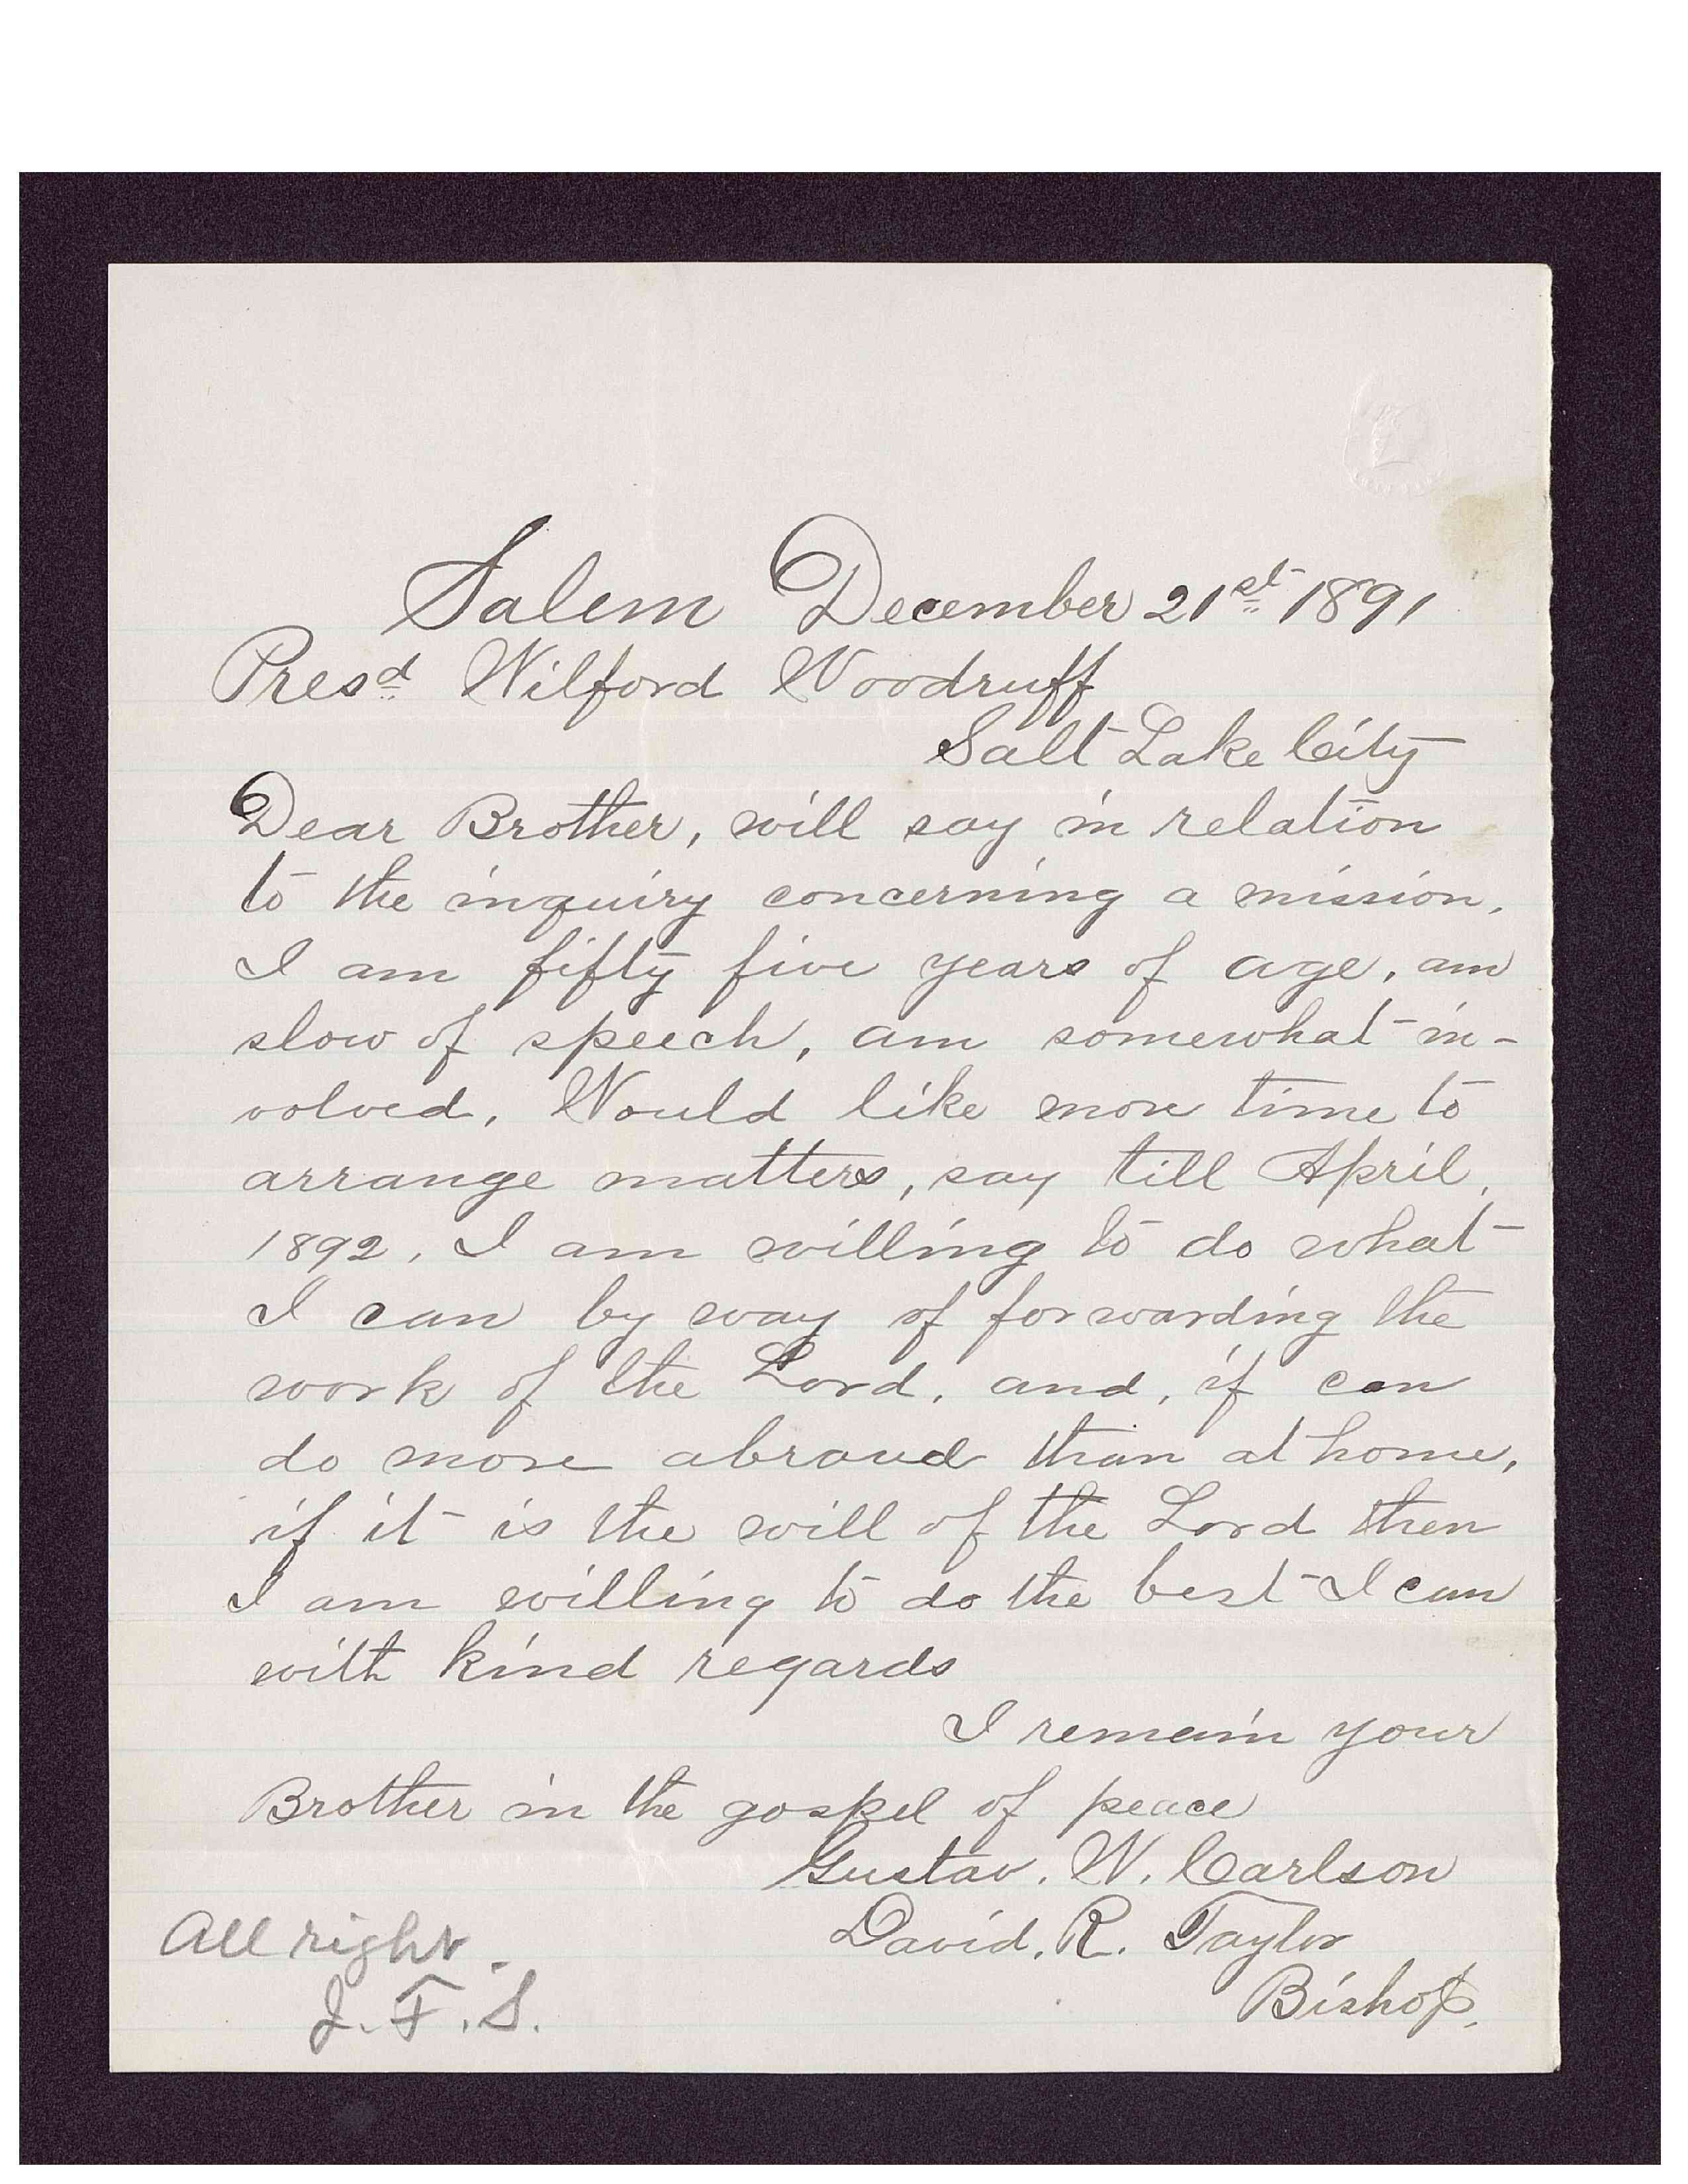 Salem December 21st 1891
Presd Wilford Woodruff
Salt Lake City
Dear Brother, will say in relation
to the inquiry concerning a mission.
I am fifty five years of age, am
slow of speech, am somewhat in-
volved, Would like more time to
arrange matters, say till April,
1892, I am willing to do what
I can by way of forwarding the
work of the Lord, and, if can
do more abroad than at home,
if it is the will of the Lord then
I am willing to do the best I can
with kind regards
I remain your
Brother in the gospel of peace
Gustav. W. Carlson
David. R. Taylor
Bishop,
All right.
J. F. S.